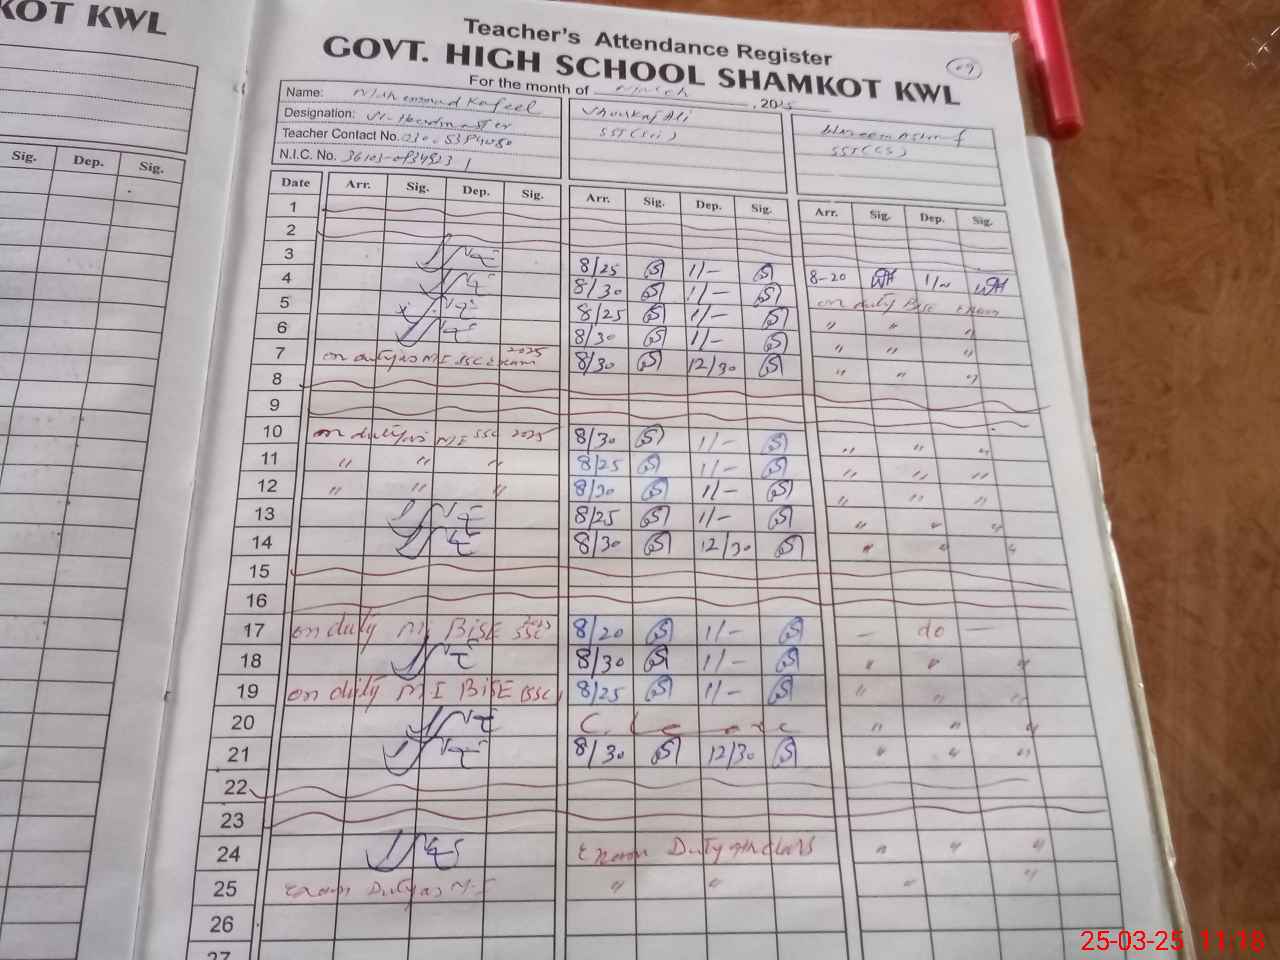 KOT KWL
Sig. Dep. Sig.
Teacher's Attendance Register
GOVT. HIGH SCHOOL SHAMKOT KWL
09
For the month of March , 2025
Name: Kafeel
Designation:
Teacher Contact No.
N.I.C. No.
Shoukat Ali
SST(Sci)
Waseem Ashraf
SST(CS)
Date Arr. Sig. Dep. Sig. Arr. Sig. Dep. Sig. Arr. Sig. Dep. Sig.
1
2
3 8/25 1/- 8-20 1/-
4 8/30 1/- on duty BISE Exam
5 8/25 1/- " " "
6 8/30 1/- " " "
7 on duty as M.I SSC Exam 2025 8/30 12/30 " " "
8
9
10 on duty as M.I SSC 2025 8/30 1/- " " "
11 " " " 8/25 1/- " " "
12 " " " 8/30 1/- " " "
13 8/25 1/- " " "
14 8/30 12/30 " " "
15
16
17 on duty MI BISE SSC 2025 8/20 1/- — do —
18 8/30 1/- " " "
19 on duty M-I BISE (SSC) 8/25 1/- " " "
20 C. Leave " " "
21 8/30 12/30 " " "
22
23
24 Exam Duty 9th class " " "
25 Exam Duty as M-I " " " "
26
27
25-03-25 11:18